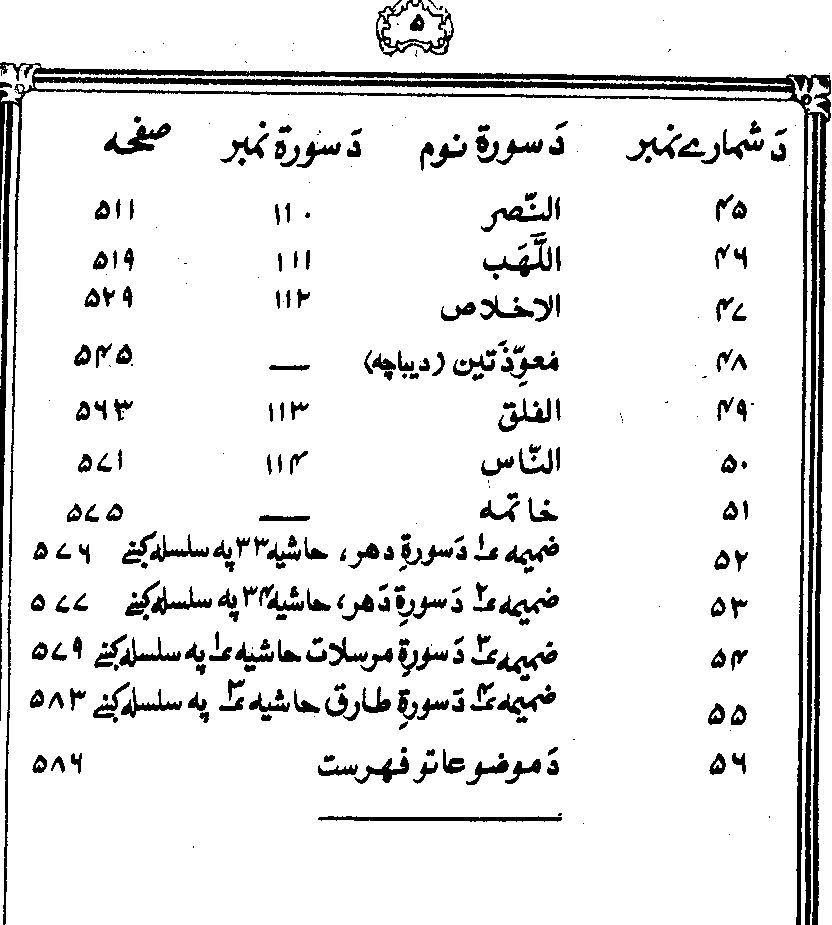 ۵
دَ شمارے نمبر دَ سورة نوم دَ سورة نمبر صفحہ
۴۵ النّصر ۱۱۰ ۵۱۱
۴۶ اللَّهَب ۱۱۱ ۵۱۹
۴۷ الاخلاص ۱۱۲ ۵۲۹
۴۸ مُعوِّذَتین (دیباچه) — ۵۴۵
۴۹ الفلق ۱۱۳ ۵۶۳
۵۰ النّاس ۱۱۴ ۵۷۱
۵۱ خاتمه — ۵۷۵
۵۲ ضمیمه ۱ دَ سورةِ دهر، حاشیه ۳۳ په سلسله کښے ۵۷۶
۵۳ ضمیمه ۲ دَ سورةِ دَهر، حاشیه ۳۴ په سلسله کښے ۵۷۷
۵۴ ضمیمه ۳ دَ سورةِ مرسلات حاشیه ۱ په سلسله کښے ۵۷۹
۵۵ ضمیمه ۴ دَ سورةِ طارق حاشیه ۳ په سلسله کښے ۵۸۳
۵۶ دَ موضوعاتو فهرست ۵۸۶